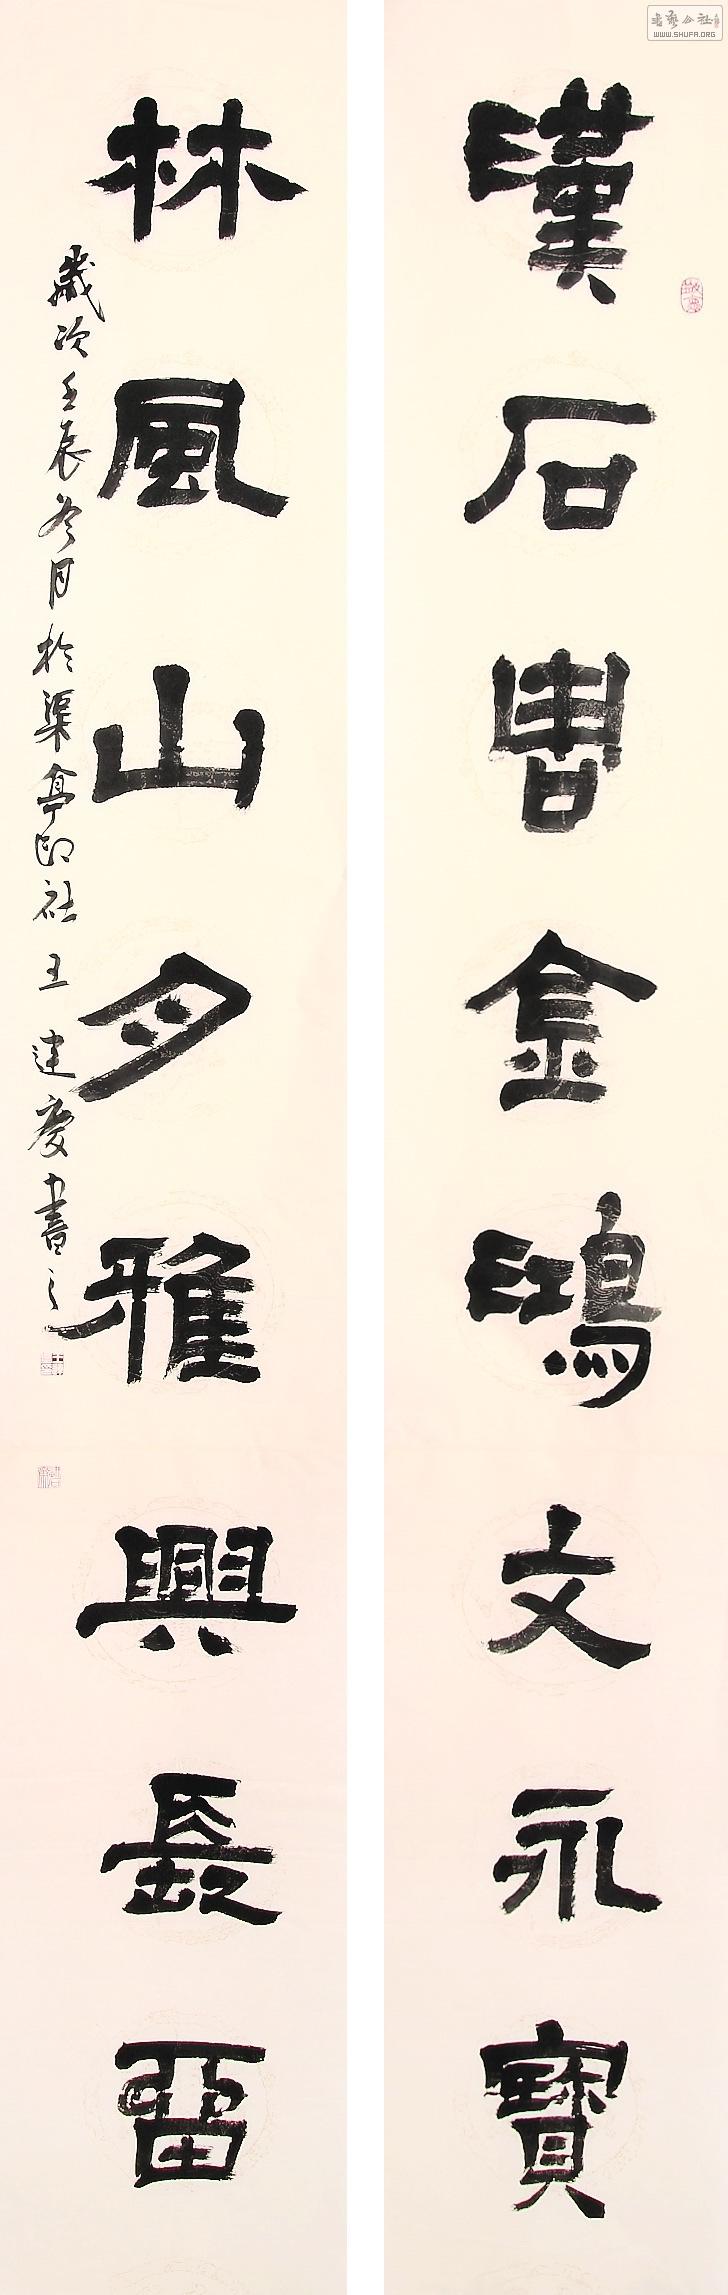 書藝公社
WWW.SHUFA.ORG
漢石周金鴻文永寶
林風山月雅興長留
歲次壬辰冬月於渠亭印社王建慶書之